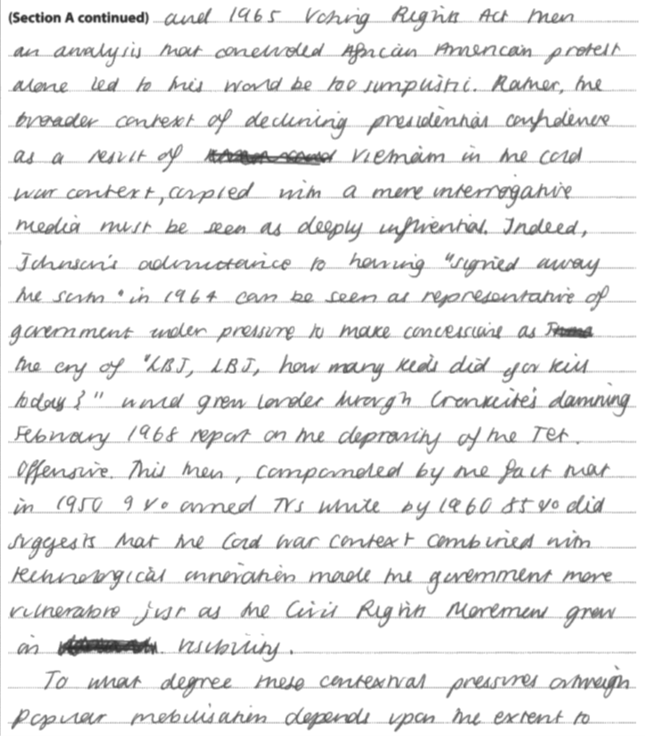 (Section A continued) and 1965 Voting Rights Act then
an analysis that concluded African American protest
alone led to this would be too simplistic. Rather, the
broader context of declining presidential confidence
as a result of Vietnam in the cold
war context, coupled with a more interrogative
media must be seen as deeply influential. Indeed,
Johnson's admittance to having "signed away
the south" in 1964 can be seen as representative of
government under pressure to make concessions as
the cry of "LBJ, LBJ, how many kids did you kill
today?" would grow louder through Cronkite's damning
February 1968 report on the depravity of the Tet
Offensive. This then, compounded by the fact that
in 1950 9% owned TVs while by 1960 85% did
suggests that the Cold War context combined with
technological innovation made the government more
vulnerable just as the Civil Rights Movement grew
in visibility.
To what degree these contextual pressures outweigh
popular mobilisation depends upon the extent to